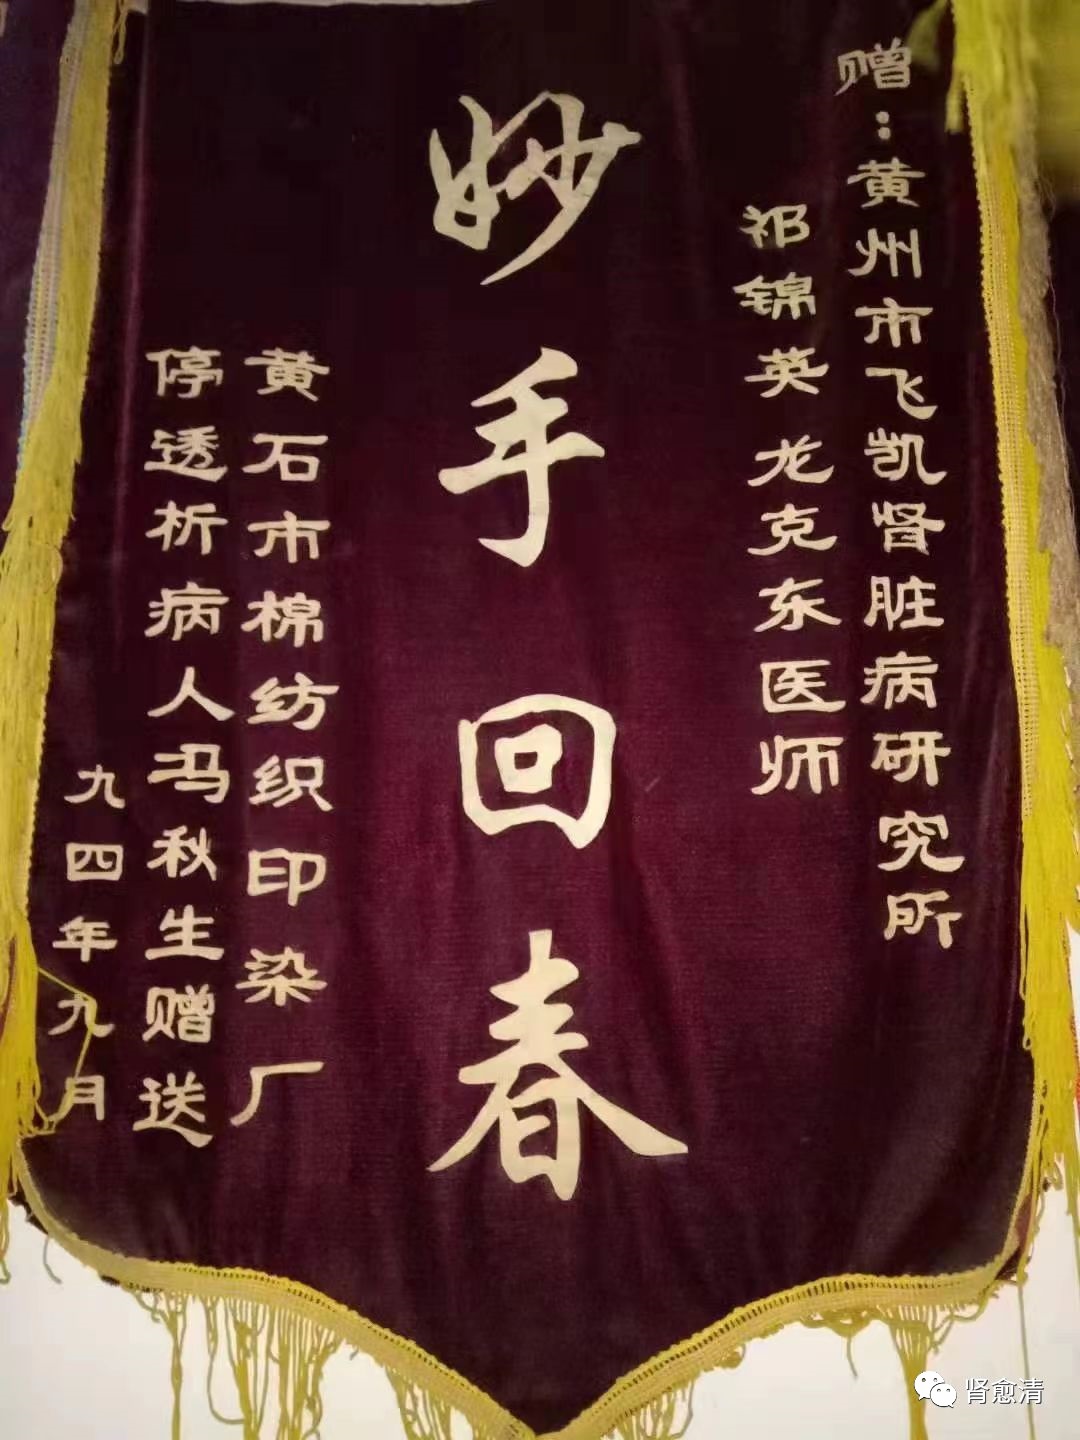 赠：黄州市飞凯肾脏病研究所
祁锦英 龙克东医师
妙手回春
黄石市棉纺织印染厂
停透析病人冯秋生赠送
九四年九月
肾愈清